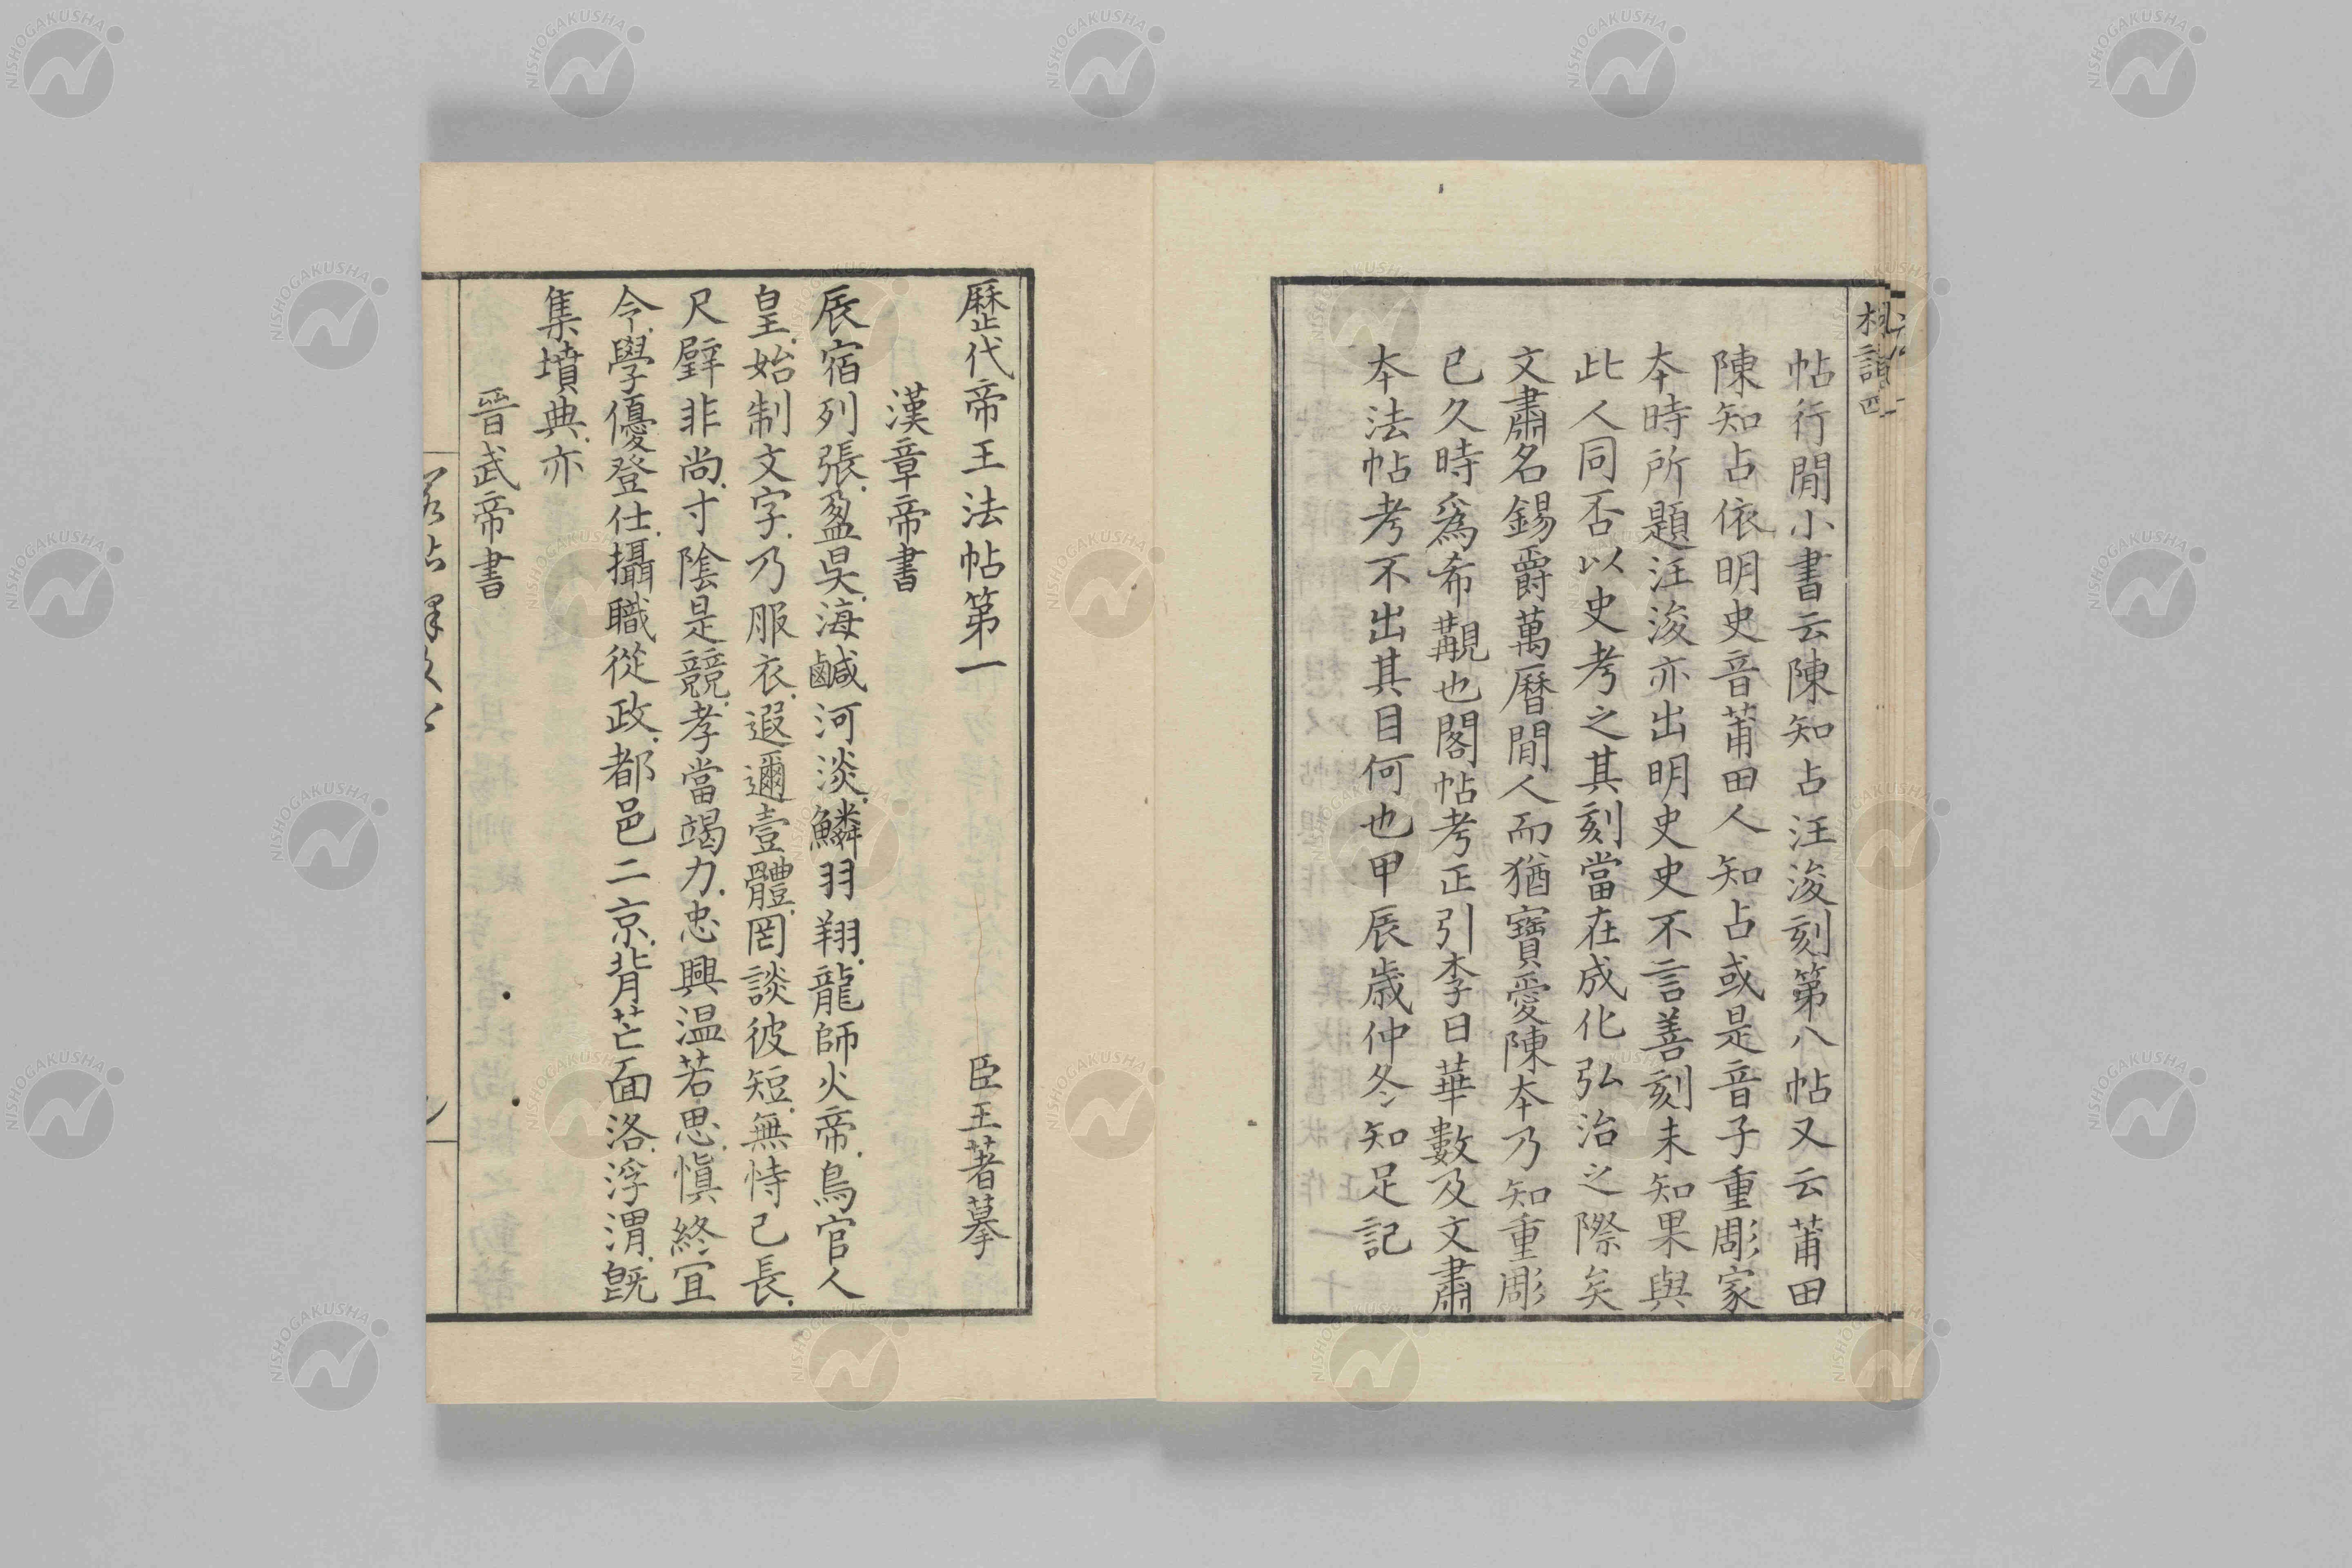 帖行間小書云陳知占汪浚刻第八帖又云莆田
陳知占依明史音莆田人知占或是音子重彫家
本時所題汪浚亦出明史史不言善刻未知果與
此人同否以史考之其刻當在成化弘治之際矣
文肅名錫爵萬曆間人而猶寶愛陳本乃知重彫
已久時爲希覯也閣帖考正引李日華數及文肅
本法帖考不出其目何也甲辰歳仲冬知足記
歷代帝王法帖第一 臣王著摹
漢章帝書
辰宿列張盈昃海鹹河淡鱗羽翔龍師火帝鳥官人
皇始制文字乃服衣遐邇壹體罔談彼短無恃己長
尺璧非尚寸陰是競孝當竭力忠興温若思慎終宜
令學優登仕攝職從政都邑二京背芒面洛浮渭既
集墳典亦
晉武帝書
NISHOGAKUSHA